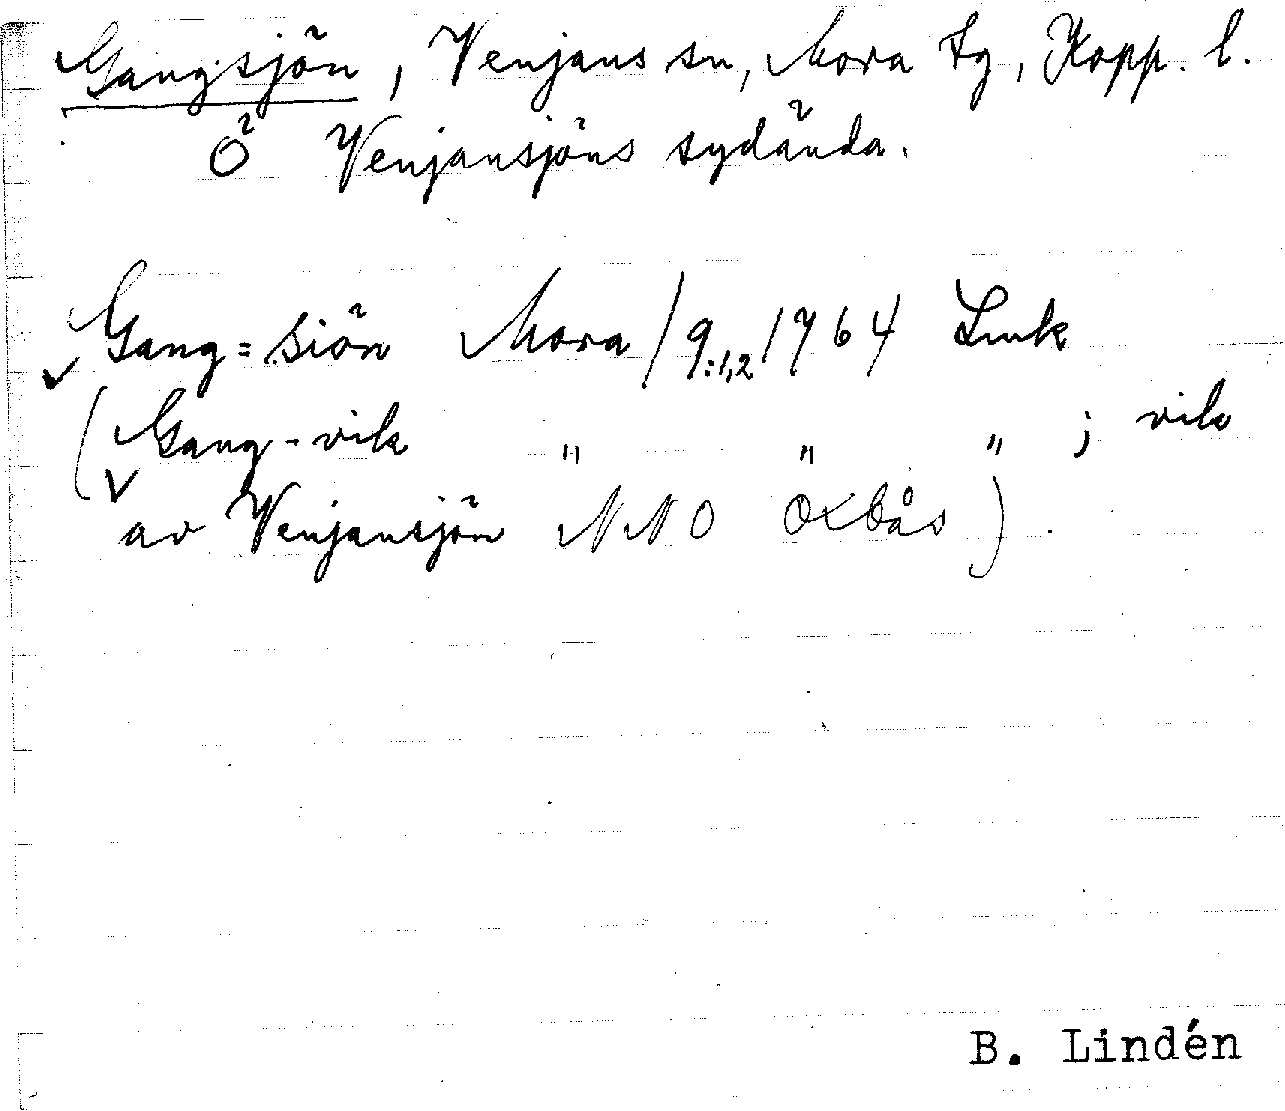 Gangsjön, Venjans sn, Mora tg, Kopp. l.
Ö Venjansjöns sydända.
Gang=siön Mora/9:1,2/1764 Lmk
(Gang-vik " " " ; vik
av Venjansjön NNO Oxbås).
B. Lindén